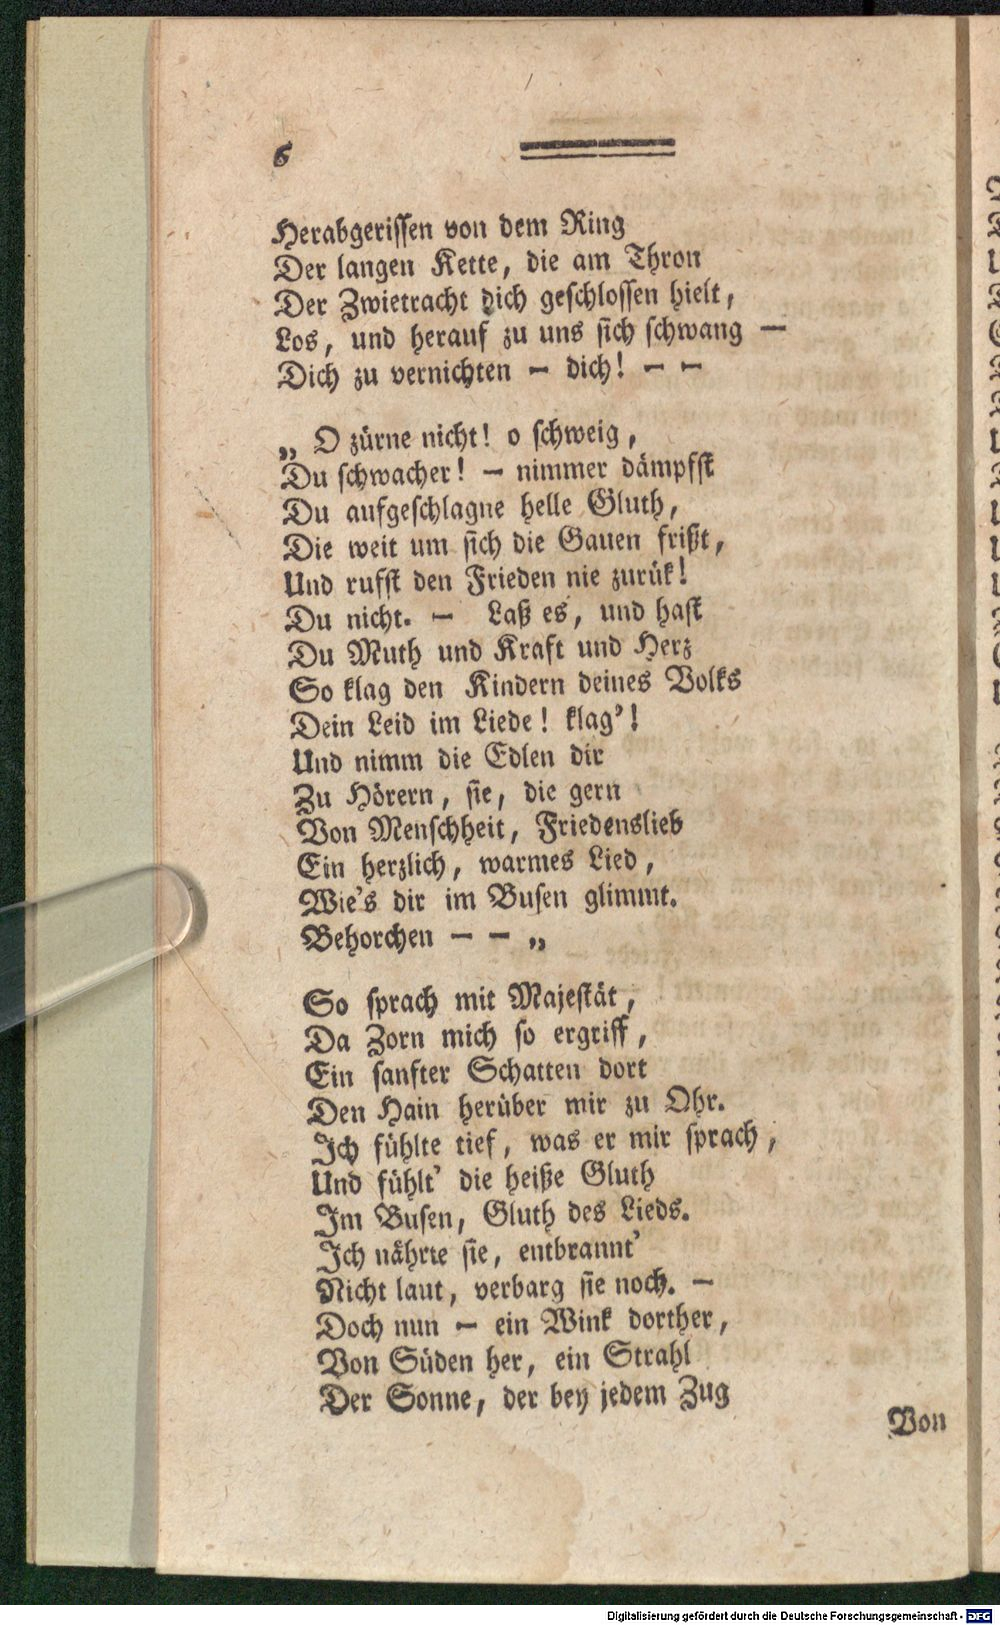 6
Herabgerissen von dem Ring
Der langen Kette, die am Thron
Der Zwietracht dich geschlossen hielt,
Los, und herauf zu uns sich schwang —
Dich zu vernichten — dich! — —
„ O zürne nicht! o schweig,
Du schwacher! — nimmer dämpfst
Du aufgeschlagne helle Gluth,
Die weit um sich die Gauen frißt,
Und rufst den Frieden nie zurük!
Du nicht. — Laß es, und hast
Du Muth und Kraft und Herz
So klag den Kindern deines Volks
Dein Leid im Liede! klag'!
Und nimm die Edlen dir
Zu Hörern, sie, die gern
Von Menschheit, Friedenslieb
Ein herzlich, warmes Lied,
Wie's dir im Busen glimmt.
Behorchen — — „
So sprach mit Majestät,
Da Zorn mich so ergriff,
Ein sanfter Schatten dort
Den Hain herüber mir zu Ohr.
Ich fühlte tief, was er mir sprach,
Und fühlt' die heiße Gluth
Im Busen, Gluth des Lieds.
Ich nährte sie, entbrannt'
Nicht laut, verbarg sie noch. —
Doch nun — ein Wink dorther,
Von Süden her, ein Strahl
Der Sonne, der bey jedem Zug
Von
Digitalisierung gefördert durch die Deutsche Forschungsgemeinschaft - DFG